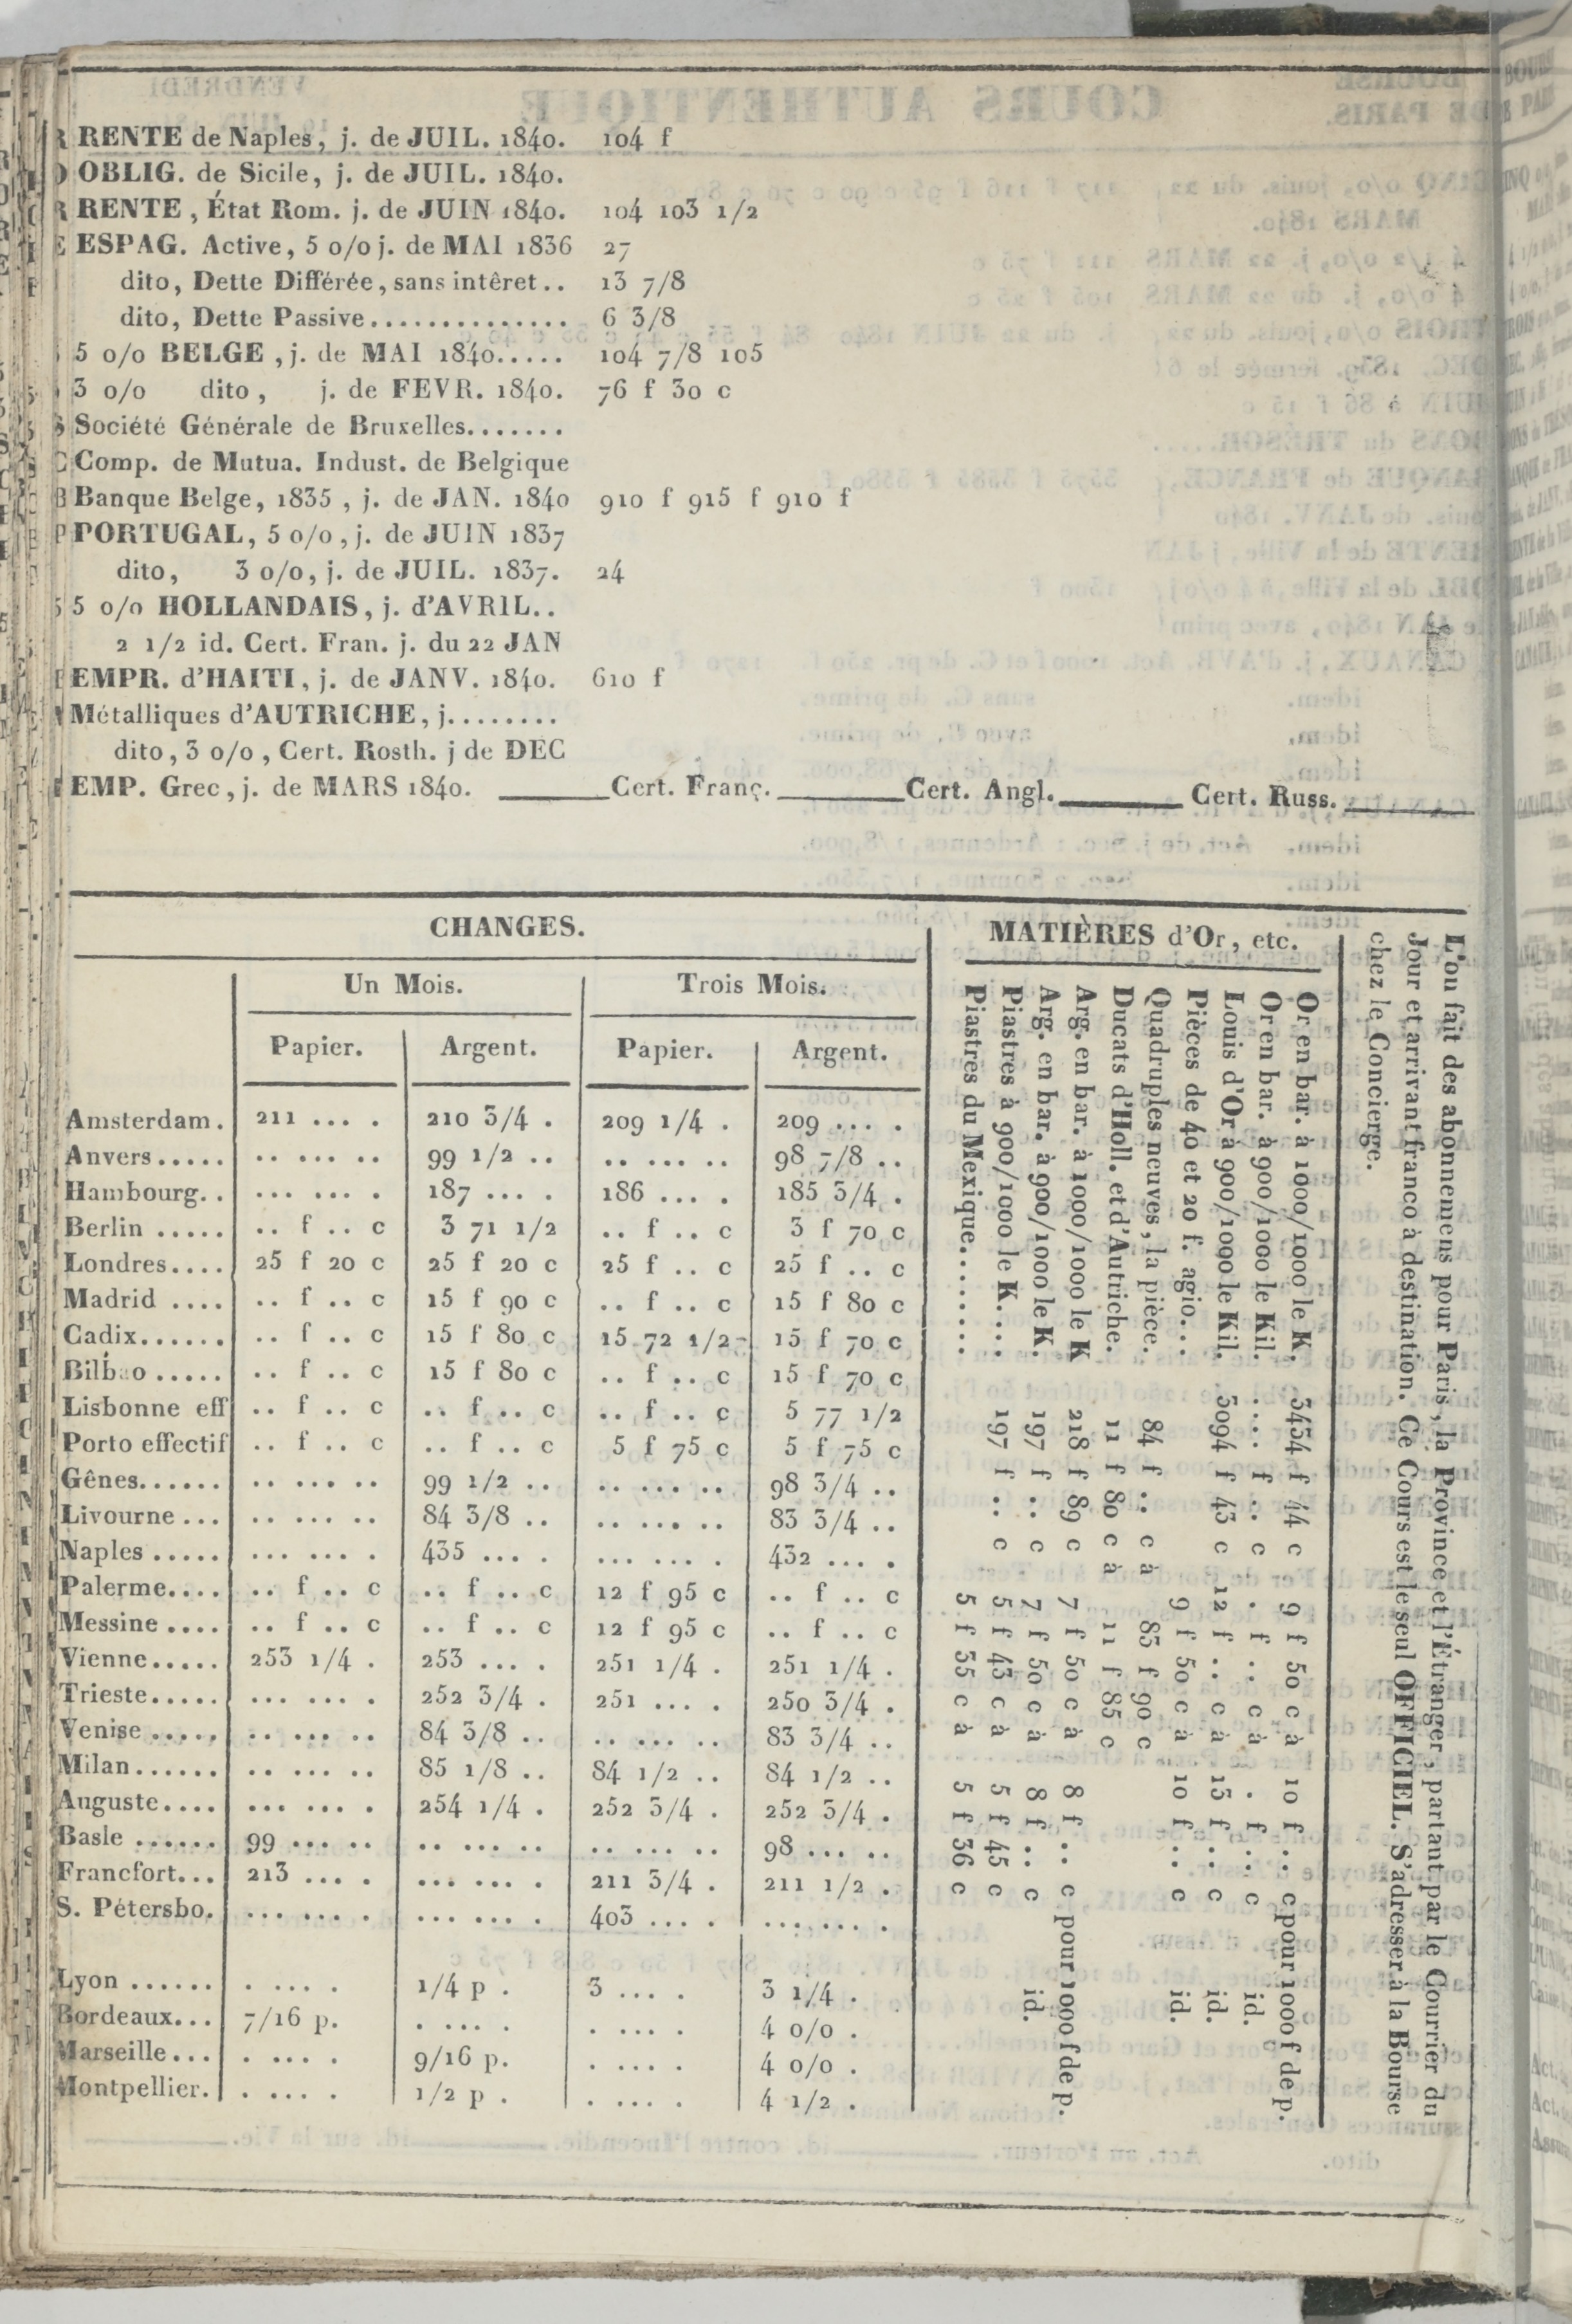 RENTE de Naples, j. de JUIL. 1840. 104 f
OBLIG. de Sicile, j. de JUIL. 1840.
RENTE, État Rom. j. de JUIN 1840. 104 103 1/2
ESPAG. Active, 5 o/o j. de MAI 1836 27
dito, Dette Différée, sans intêret.. 13 7/8
dito, Dette Passive.............. 6 3/8
5 o/o BELGE, j. de MAI 1840..... 104 7/8 105
3 o/o dito, j. de FEVR. 1840. 76 f 30 c
Société Générale de Bruxelles.......
Comp. de Mutua. Indust. de Belgique
Banque Belge, 1835, j. de JAN. 1840 910 f 915 f 910 f
PORTUGAL, 5 o/o, j. de JUIN 1837
dito, 3 o/o, j. de JUIL. 1837. 24
5 o/o HOLLANDAIS, j. d'AVRIL..
2 1/2 id. Cert. Fran. j. du 22 JAN
EMPR. d'HAITI, j. de JANV. 1840. 610 f
Métalliques d'AUTRICHE, j........
dito, 3 o/o, Cert. Rosth. j de DEC
EMP. Grec, j. de MARS 1840. ______Cert. Franç.______Cert. Angl.______ Cert. Russ.______
CHANGES.
Un Mois. Trois Mois.
Papier. Argent. Papier. Argent.
Amsterdam. 211 ... . 210 3/4 . 209 1/4 . 209 ... .
Anvers..... .. ... .. 99 1/2 .. .. ... .. 98 7/8 ..
Hambourg.. ... ... . 187 ... . 186 ... . 185 3/4 .
Berlin ..... .. f .. c 3 71 1/2 .. f .. c 3 f 70 c
Londres.... 25 f 20 c 25 f 20 c 25 f .. c 25 f .. c
Madrid .... .. f .. c 15 f 90 c .. f .. c 15 f 80 c
Cadix...... .. f .. c 15 f 80 c 15 72 1/2 15 f 70 c
Bilbao ..... .. f .. c 15 f 80 c .. f .. c 15 f 70 c
Lisbonne eff .. f .. c .. f .. c .. f .. c 5 77 1/2
Porto effectif .. f .. c .. f .. c 5 f 75 c 5 f 75 c
Gênes...... .. ... .. 99 1/2 .. .. ... .. 98 3/4 ..
Livourne ... .. ... .. 84 3/8 .. .. ... .. 83 3/4 ..
Naples ..... ... ... . 435 ... . ... ... . 432 ... .
Palerme.... .. f .. c .. f .. c 12 f 95 c .. f .. c
Messine .... .. f .. c .. f .. c 12 f 95 c .. f .. c
Vienne..... 253 1/4 . 253 ... . 251 1/4 . 251 1/4 .
Trieste..... ... ... . 252 3/4 . 251 ... . 250 3/4 .
Venise ..... .. ... .. 84 3/8 .. .. ... .. 83 3/4 ..
Milan...... .. ... .. 85 1/8 .. 84 1/2 .. 84 1/2 ..
Auguste.... ... ... . 254 1/4 . 252 3/4 . 252 3/4 .
Basle ...... 99 ... .. .. ... .. .. ... .. 98 ... ..
Francfort... 213 ... . ... ... . 211 3/4 . 211 1/2 .
S. Pétersbo. ... ... . ... ... . 403 ... . ... ... .
Lyon ...... . ... . 1/4 p . 3 ... . 3 1/4 .
Bordeaux... 7/16 p. . ... . . ... . 4 o/o .
Marseille... . ... . 9/16 p. . ... . 4 o/o .
Montpellier. . ... . 1/2 p . . ... . 4 1/2 .
MATIÈRES d'Or, etc.
Or en bar. à 1000/1000 le K. 3434 f 44 c 9 f 50 c à 10 f .. c pour 1000 f de p.
Or en bar. à 900/1000 le Kil. .... f .. c . f .. c à . f .. c id.
Louis d'Or à 900/1000 le Kil. 3094 f 43 c 12 f .. c à 13 f .. c id.
Pièces de 40 et 20 f. agio... 9 f 50 c à 10 f .. c id.
Quadruples neuves, la pièce. 84 f .. c à 83 f 90 c
Ducats d'Holl. et d'Autriche. 11 f 80 c à 11 f 85 c
Arg. en bar. à 1000/1000 le K 218 f 89 c 7 f 50 c à 8 f .. c pour 1000 f de p.
Arg. en bar. à 900/1000 le K. 197 f .. c 7 f 50 c à 8 f .. c id.
Piastres à 900/1000 le K.... 197 f .. c 5 f 43 c à 5 f 45 c
Piastres du Mexique....... 5 f 35 c à 5 f 36 c
L'ou fait des abonnemens pour Paris, la Province et l'Étranger, partant par le Courrier du
Jour et arrivant franco à destination. Ce Cours est le seul OFFICIEL. S'adresser à la Bourse
chez le Concierge.